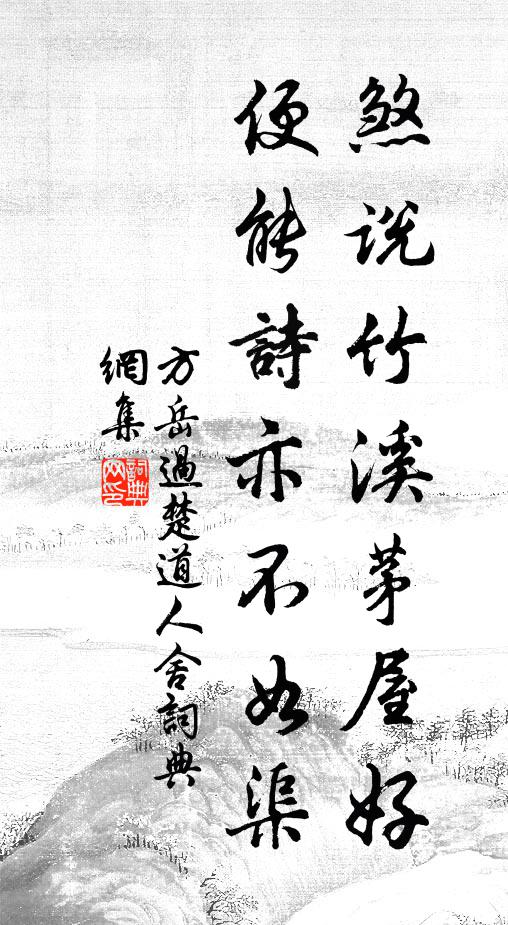 煞说竹溪茅屋好
便能詩亦不如渠
方岳過楚道人舍詞典
網集
詞典
网印